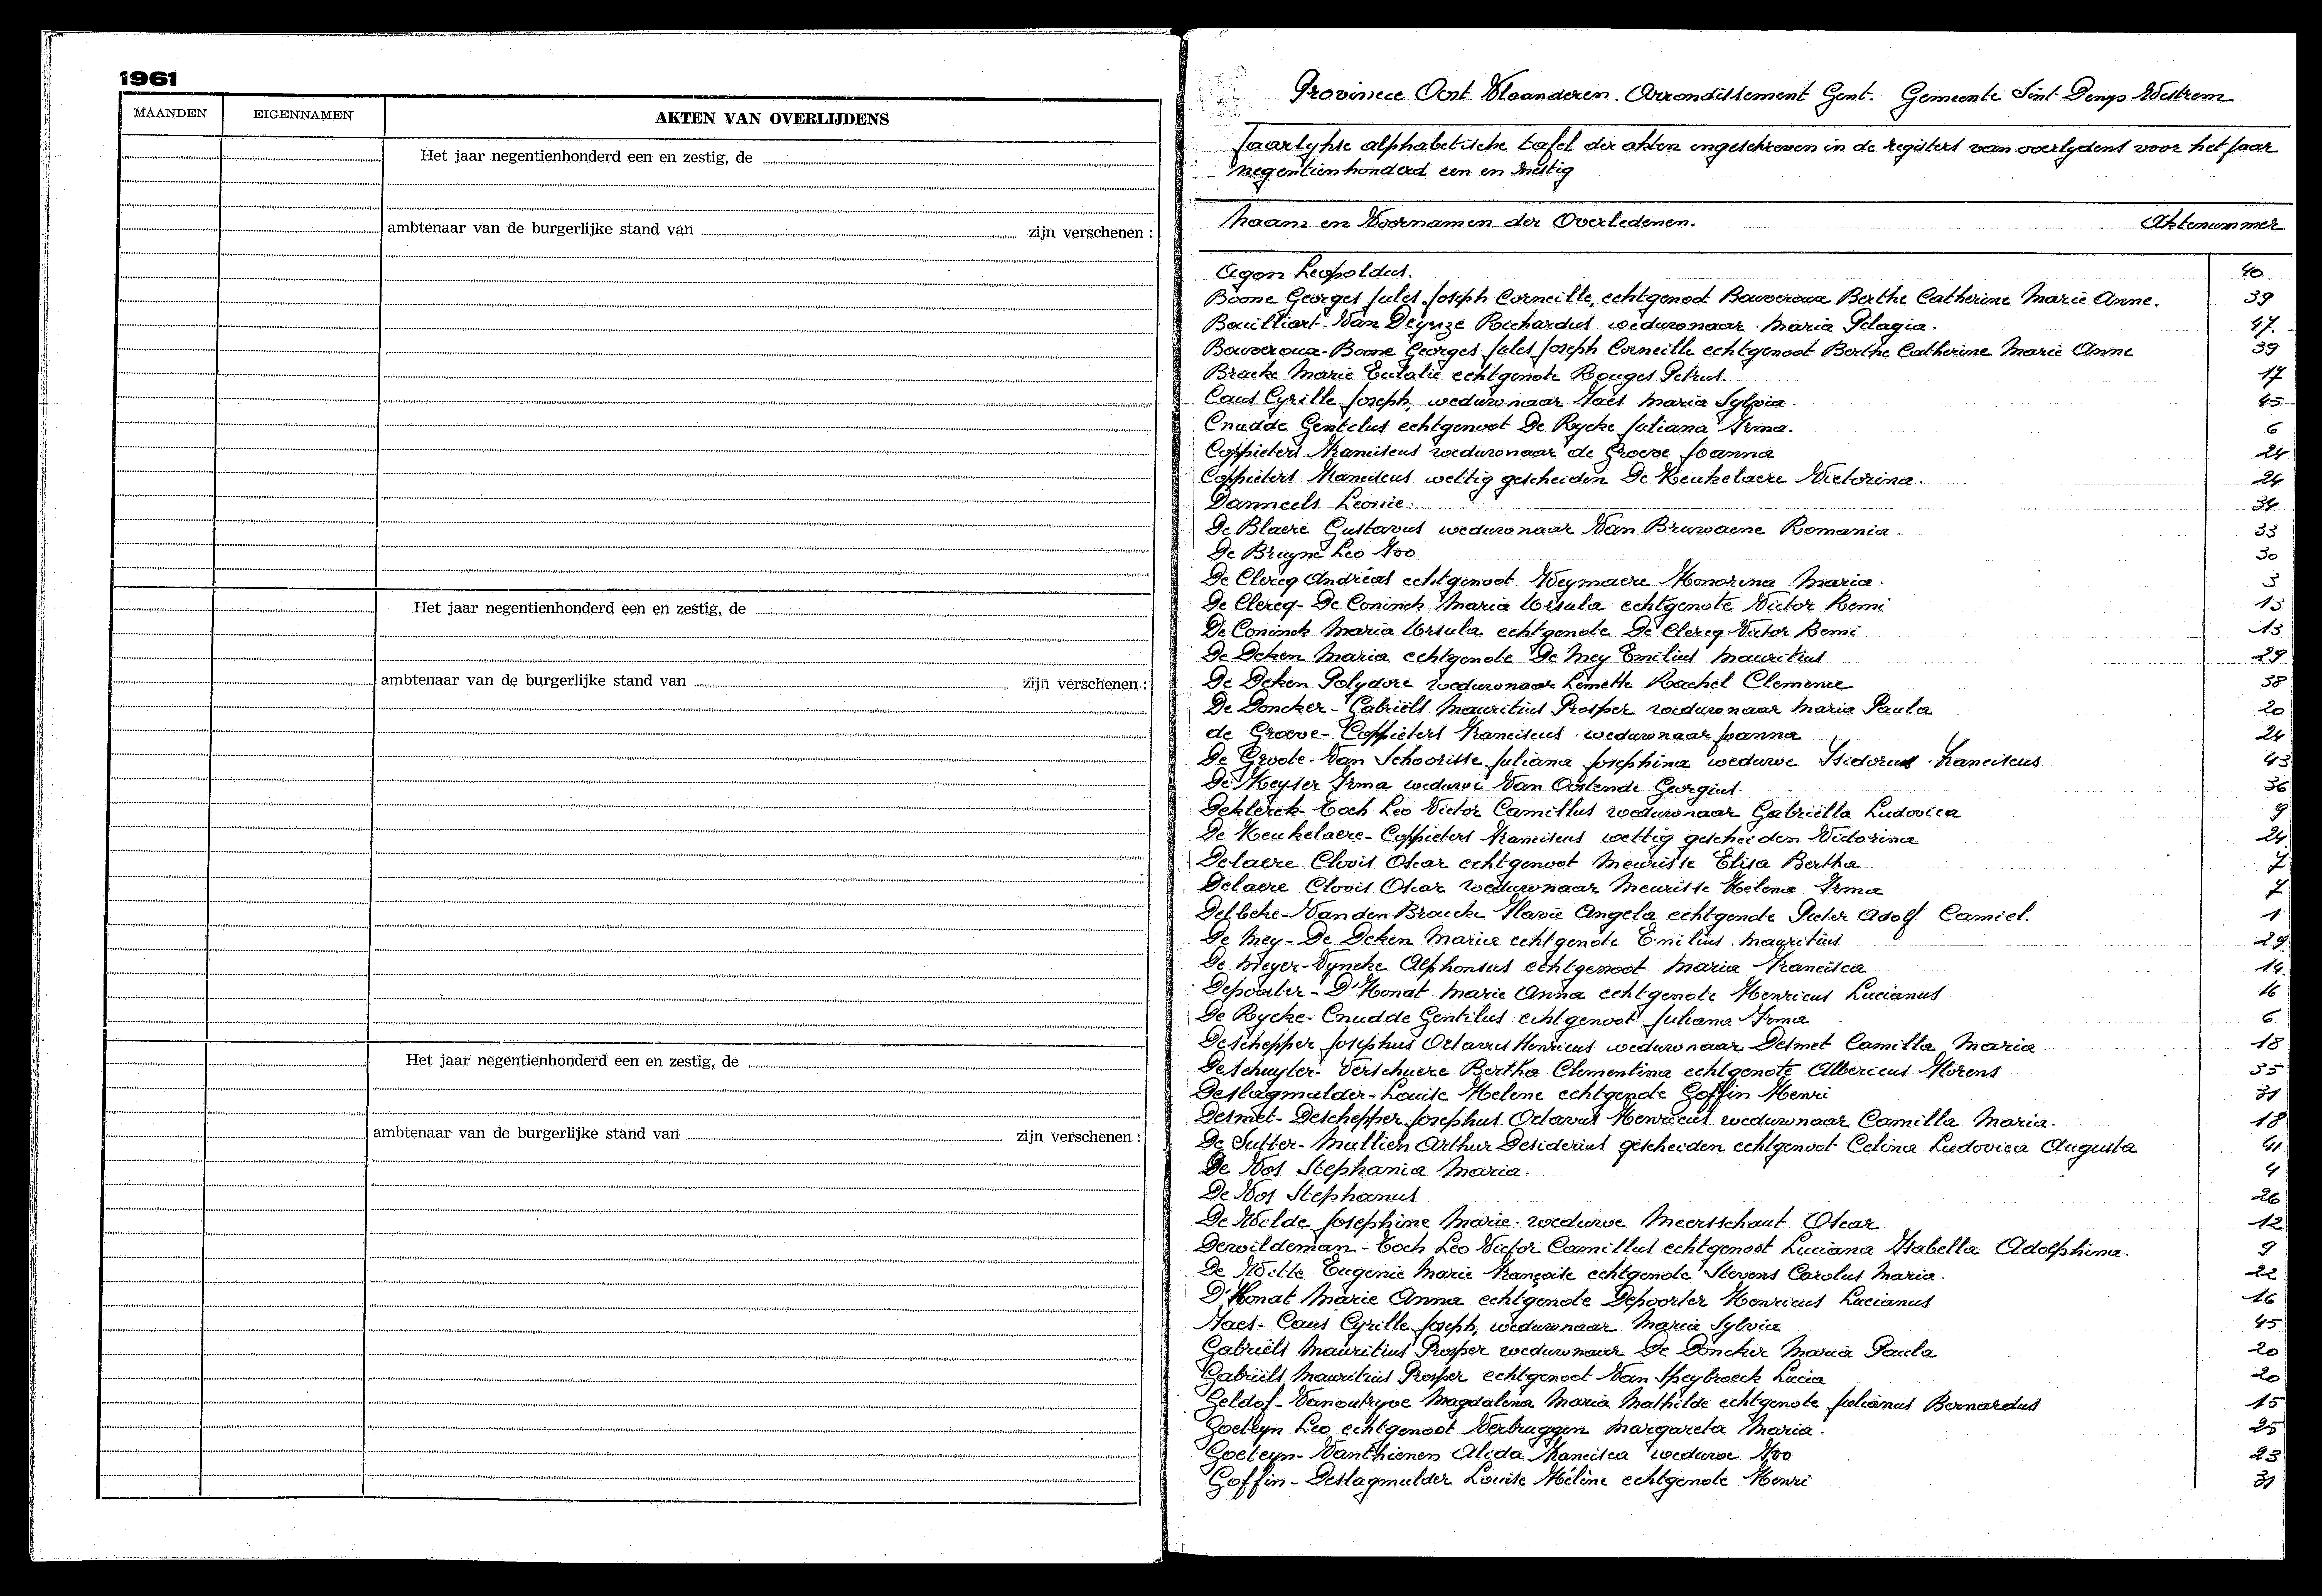 1961
MAANDEN EIGENNAMEN AKTEN VAN OVERLIJDENS
Het jaar negentienhonderd een en zestig, de
ambtenaar van de burgerlijke stand van zijn verschenen :
Het jaar negentienhonderd een en zestig, de
ambtenaar van de burgerlijke stand van zijn verschenen :
Het jaar negentienhonderd een en zestig, de
ambtenaar van de burgerlijke stand van zijn verschenen :
Provincie Oost Vlaanderen. Arrondissement Gent. Gemeente Sint Denys Westrem
Jaarlykse alphabetische tafel der akten ingeschreven in de registers van overlydens voor het jaar
negentienhonderd een en zestig
Naam en Voornamen der Overledenen. Aktenummer
Agon Leopoldus. 40
Boone Georges Jules Joseph Corneille, echtgenoot Bauveroux Berthe Catherine Marie Anne. 39
Bouilliart-Van Deynze Richardus weduwnaar Maria Pelagia. 47.
Bauveroux-Boone Georges Jules Joseph Corneille echtgenoot Berthe Catherine Marie Anne 39
Bracke Marie Eulalie echtgenote Rouges Petrus. 17
Caus Cyrille Joseph, weduwnaar Naes Maria Sylvia. 45
Cnudde Gentilus echtgenoot De Rycke Juliana Irma. 6
Coppieters Franciscus weduwnaar de Groeve Joanna 24
Coppieters Franciscus wettig gescheiden De Keukelaere Victorina. 24
Danneels Leonie. 34
De Blaere Gustavus weduwnaar Van Bruwaene Romania. 33
De Bruyne Leo Ivo 30
De Clercq Andréas echtgenoot Weymaere Honorina Maria. 3
De Clercq-De Coninck Maria Ursula echtgenote Victor Remi 13
De Coninck Maria Ursula echtgenote De Clercq Victor Remi 13
De Deken Maria echtgenote De Mey Emilius Mauritius 29
De Deken Polydore weduwnaar Lemette Rachel Clemence 38
De Doncker-Gabriëls Mauritius Prosper weduwnaar Maria Paula 20
de Groeve-Coppieters Franciscus weduwnaar Joanna 24
De Groote-Van Schoorisse Juliana Josephina weduwe Isidorus Franciscus 43
De Keyser Irma weduwe Van Oostende Georgius. 36
Deklerck-Coch Leo Victor Camillus weduwnaar Gabriëlla Ludovica 9
De Keukelaere-Coppieters Franciscus wettig gescheiden Victorina 24
Delaere Clovis Oscar echtgenoot Meurisse Elisa Bertha 7
Delaere Clovis Oscar weduwnaar Meurisse Helena Irma 7
Delbeke-Van den Braucke Flavie Angela echtgenote Pieter Adolf Camiel. 1
De Mey-De Deken Maria echtgenote Emilius Mauritius 29
De Meyer-Vyncke Alphonsus echtgenoot Maria Francisca 14
Depoorter-D'Honat Marie Anna echtgenote Henricus Lucianus 16
De Rycke-Cnudde Gentilus echtgenoot Juliana Irma 6
Deschepper Josephus Octavus Henricus weduwnaar Desmet Camilla Maria. 18
Deschuyter-Verschuere Bertha Clementina echtgenote Albericus Florens 35
Deslagmulder-Louise Helene echtgenote Goffin Henri 31
Desmet-Deschepper Josephus Octavus Henricus weduwnaar Camilla Maria. 18
De Sutter-Mullien Arthur Desiderius gescheiden echtgenoot Celina Ludovica Augusta 41
De Vos Stephania Maria. 4
De Vos Stephanus 26
De Wilde Josephine Marie weduwe Meersschaut Oscar 12
Dewildeman-Coch Leo Victor Camillus echtgenoot Luciana Isabella Adolphina. 9
De Witte Eugenie Marie Françoise echtgenote Stevens Carolus Maria. 22
D'Honat Marie Anna echtgenote Depoorter Henricus Lucianus 16
Naes-Caus Cyrille Joseph, weduwnaar Maria Sylvia 45
Gabriëls Mauritius Prosper weduwnaar De Doncker Maria Paula 20
Gabriëls Mauritius Prosper echtgenoot Van Speybroeck Lucia 20
Geldof-Vanoutryve Magdalena Maria Mathilde echtgenote Julianus Bernardus 15
Goeteyn Leo echtgenoot Verbruggen Margareta Maria. 25
Goeteyn-Vanthienen Alida Francisca weduwe Ivo 23
Goffin-Deslagmulder Louise Hélène echtgenote Henri 31